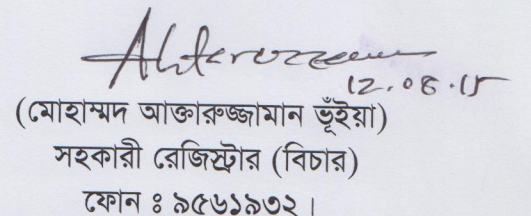 Akteruzzaman
12.08.15
(মোহাম্মদ আক্তারুজ্জামান ভূঁইয়া)
সহকারী রেজিস্ট্রার (বিচার)
ফোন ঃ ৯৫৬১৯৩২।